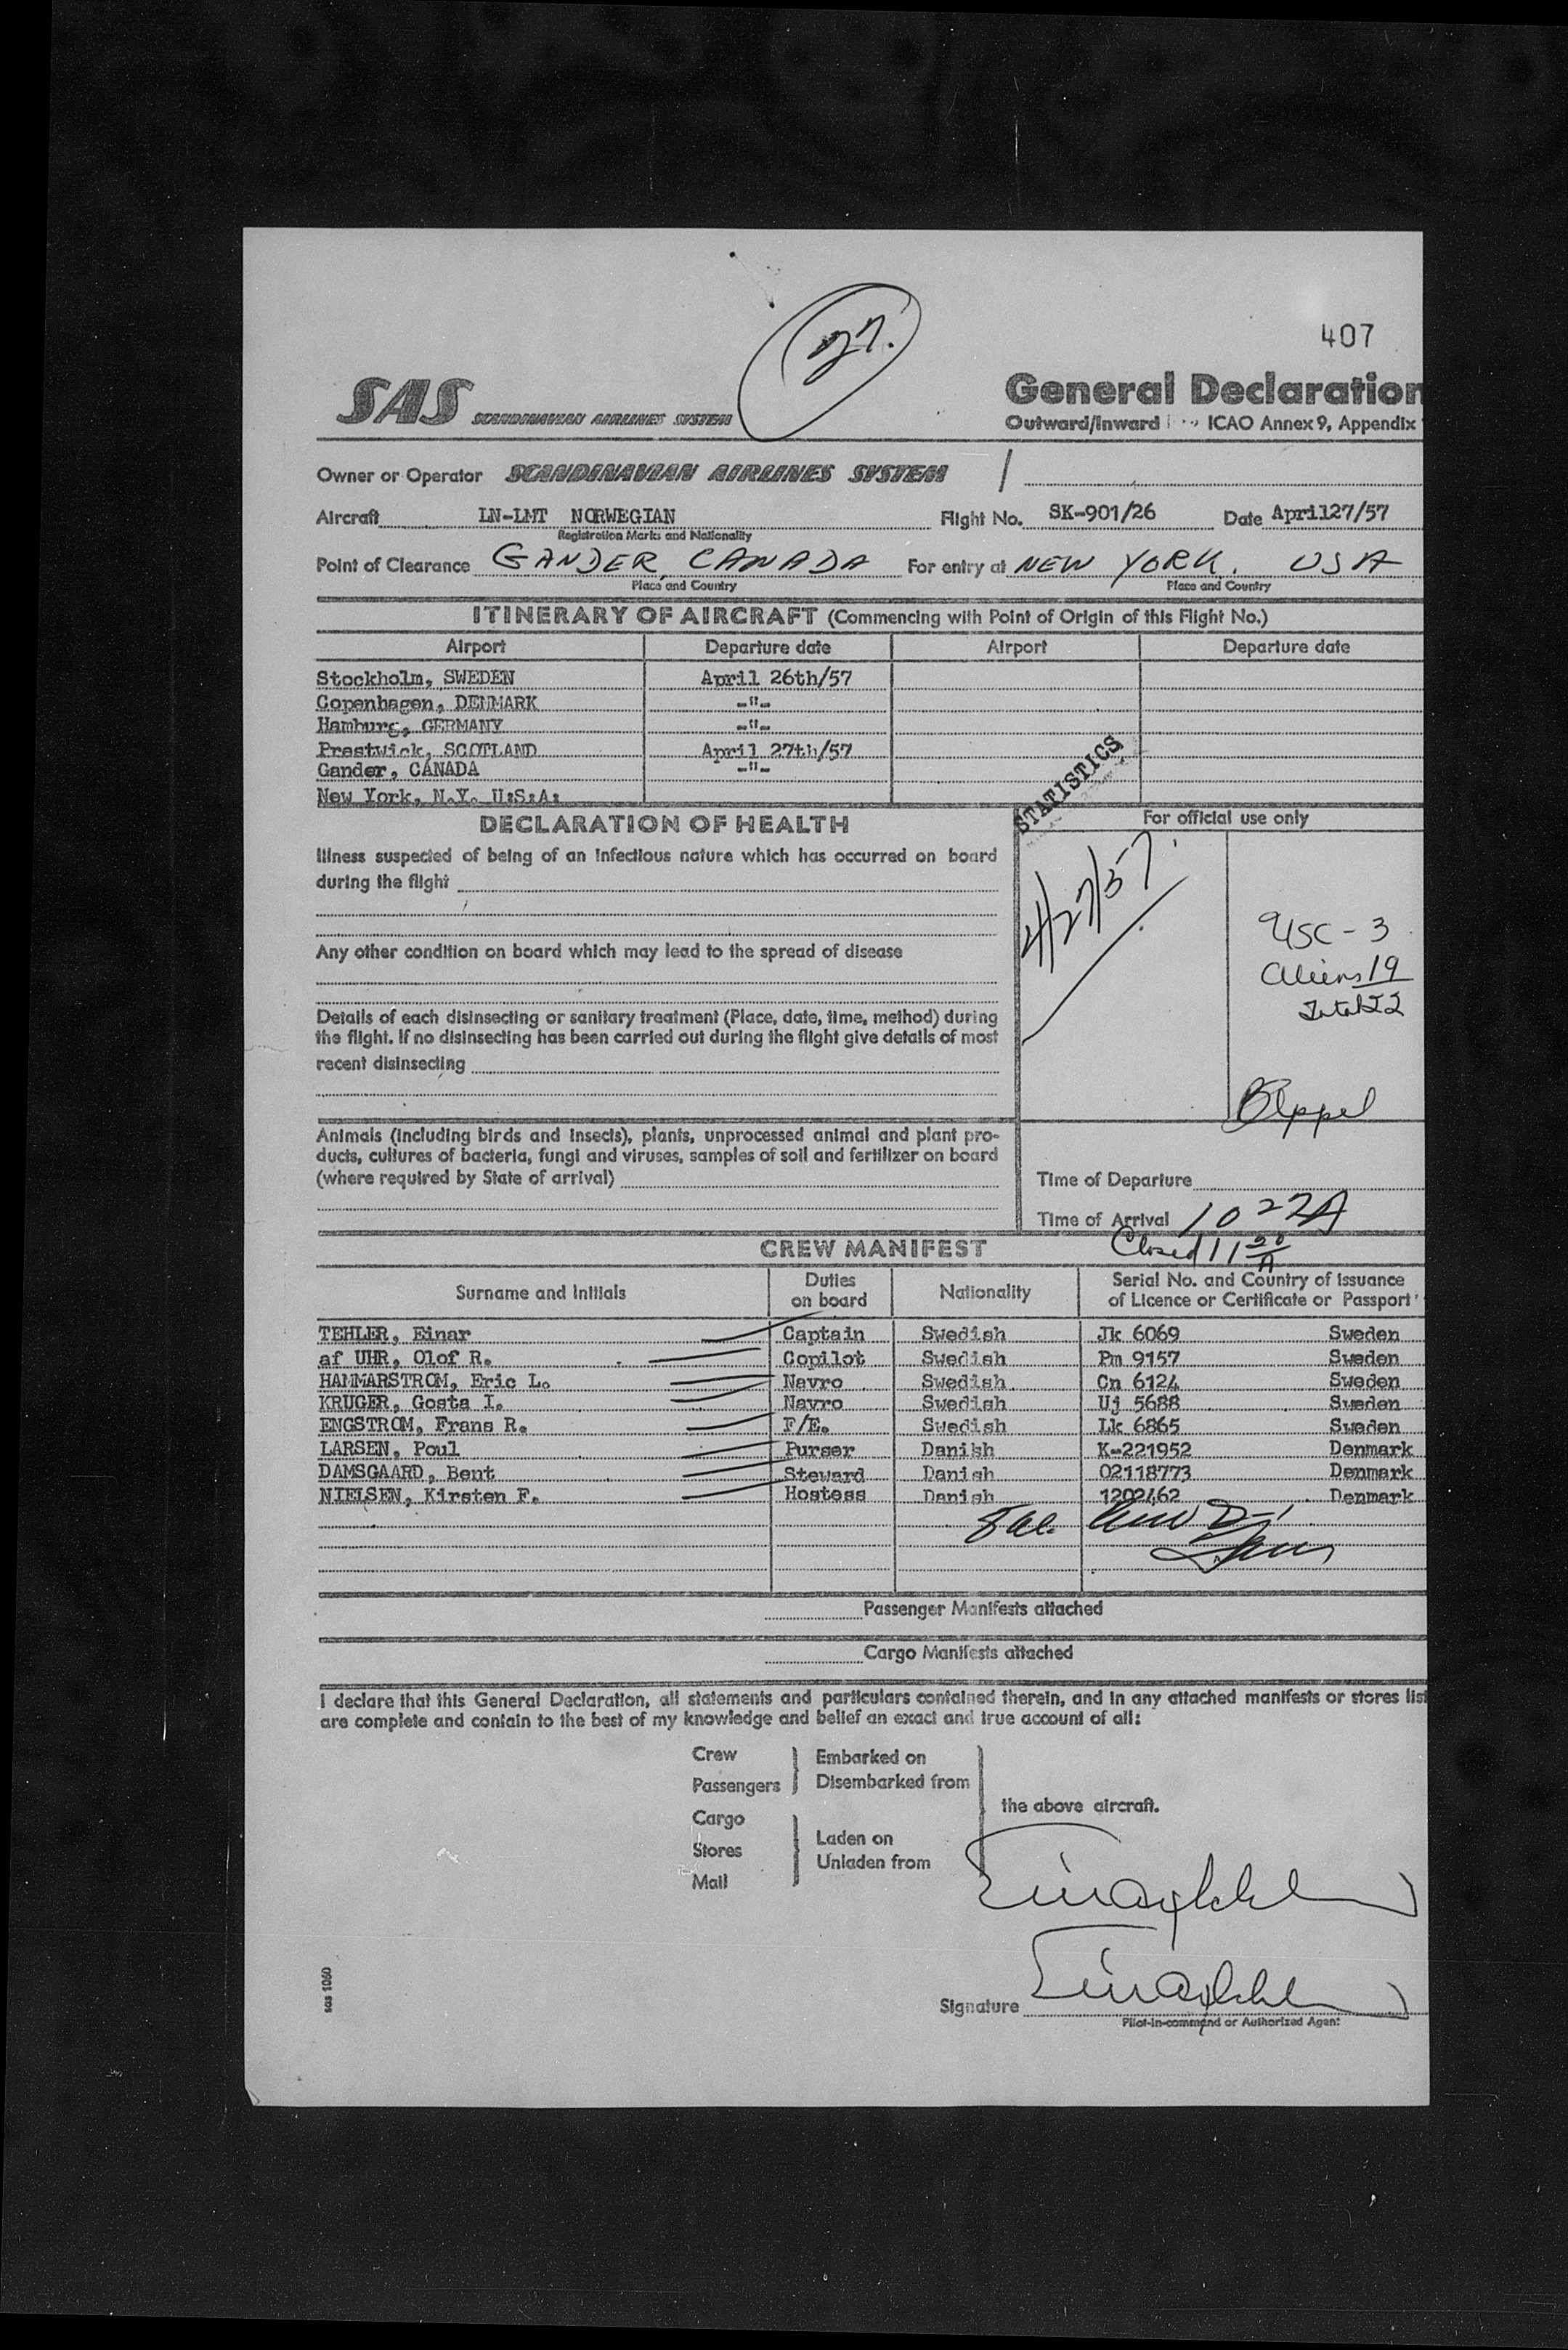 27.
407
SAS SCANDINAVIAN AIRLINES SYSTEM
General Declaration
Outward/Inward ICAO Annex 9, Appendix
Owner or Operator SCANDINAVIAN AIRLINES SYSTEM /
Aircraft LN-LMT NORWEGIAN Flight No. SK-901/26 Date April27/57
Registration Marks and Nationality
Point of Clearance GANDER, CANADA For entry at NEW YORK. USA
Place and Country Place and Country
ITINERARY OF AIRCRAFT (Commencing with Point of Origin of this Flight No.)
Airport Departure date Airport Departure date
Stockholm, SWEDEN April 26th/57
Copenhagen, DENMARK -"-
Hamburg, GERMANY -"-
Prestwick, SCOTLAND April 27th/57
Gander, CANADA -"-
New York, N.Y. U:S:A:
STATISTICS
DECLARATION OF HEALTH
For official use only
Illness suspected of being of an infectious nature which has occurred on board
during the flight
4/27/57
USC - 3
Aliens 19
Total 22
Any other condition on board which may lead to the spread of disease
Details of each disinsecting or sanitary treatment (Place, date, time, method) during
the flight. If no disinsecting has been carried out during the flight give details of most
recent disinsecting
Animals (including birds and insects), plants, unprocessed animal and plant pro-
ducts, cultures of bacteria, fungi and viruses, samples of soil and fertilizer on board
(where required by State of arrival)
Time of Departure
Time of Arrival 10 22A
Closed 11 20 A
CREW MANIFEST
Surname and Initials Duties on board Nationality Serial No. and Country of Issuance of Licence or Certificate or Passport
TEHLER, Einar Captain Swedish Jk 6069 Sweden
af UHR, Olof R. Copilot Swedish Pm 9157 Sweden
HAMMARSTROM, Eric L. Navro Swedish Cn 6124 Sweden
KRUGER, Gosta I. Navro Swedish Uj 5688 Sweden
ENGSTROM, Frans R. F/E. Swedish Lk 6865 Sweden
LARSEN, Poul Purser Danish K-221952 Denmark
DAMSGAARD, Bent Steward Danish 02118773 Denmark
NIELSEN, Kirsten F. Hostess Danish 1202462 Denmark
Passenger Manifests attached
Cargo Manifests attached
I declare that this General Declaration, all statements and particulars contained therein, and in any attached manifests or stores list
are complete and contain to the best of my knowledge and belief an exact and true account of all:
Crew
Passengers
Embarked on
Disembarked from
Cargo
Stores
Mail
Laden on
Unladen from
the above aircraft.
Signature
Pilot-in-command or Authorized Agent
sas 1060